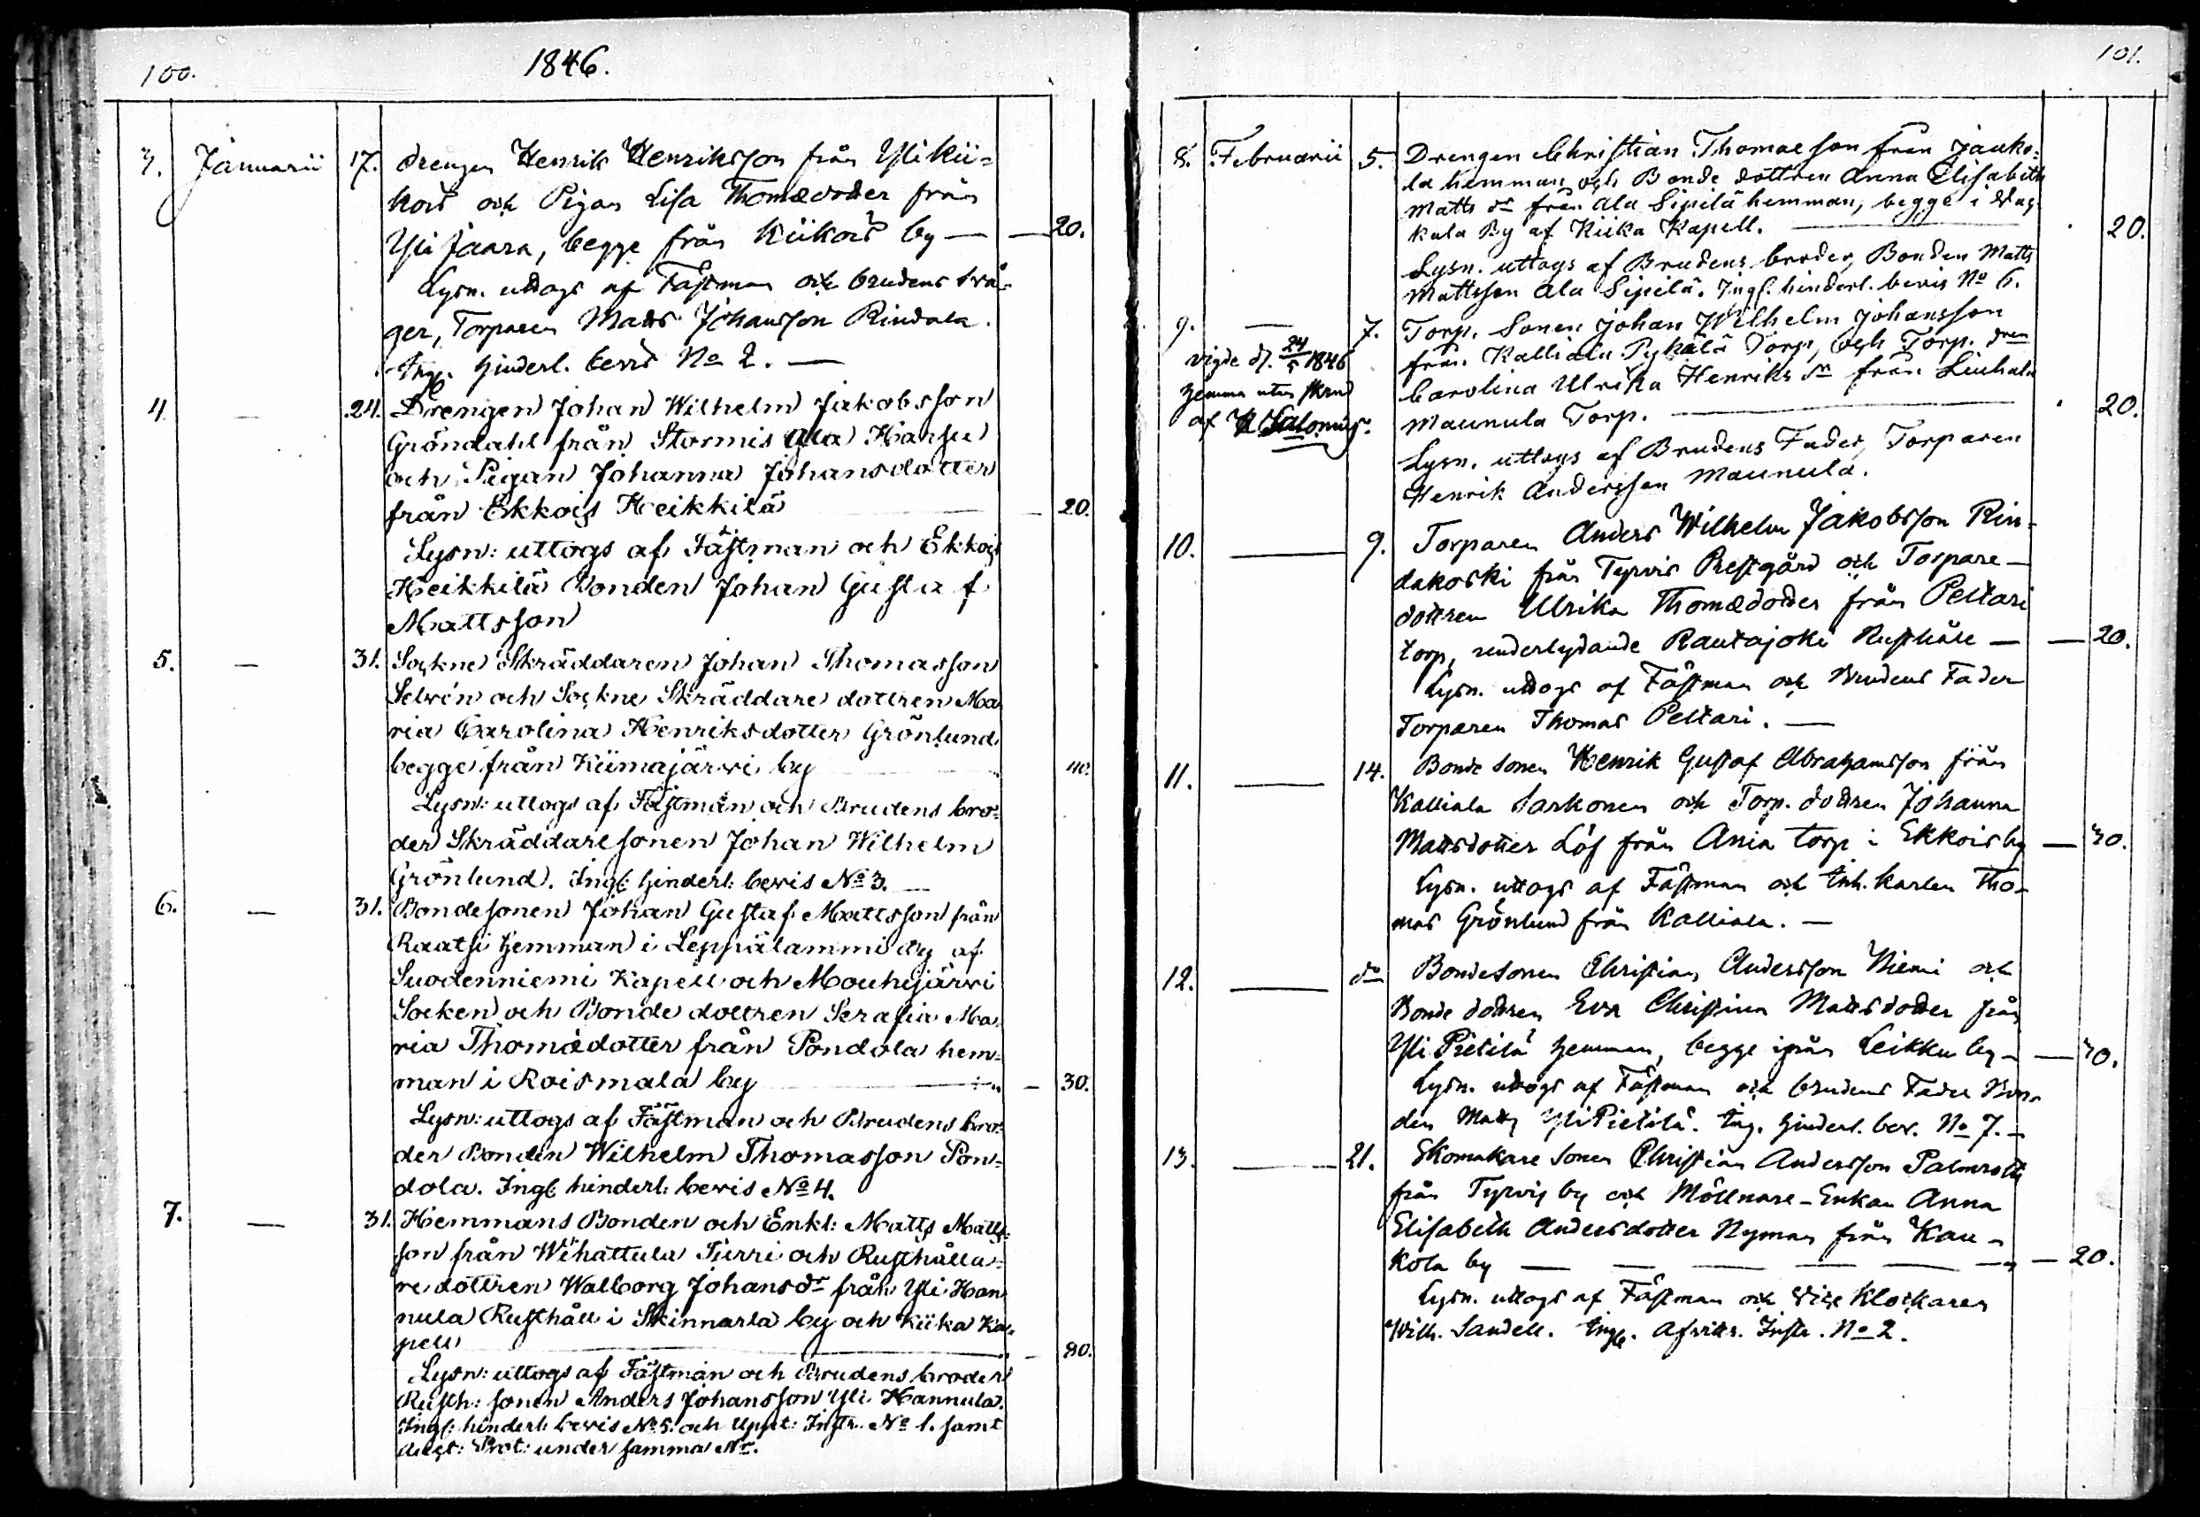 100.
1846.
3. Januarii 17. Drengen Henrik Henriksson från Yli Kii-
kois och Pigan Lisa Thomædotter från
Yli Jaara, begge från Kiikois by — — 20.
Lysn. uttogs af Fästman och brudens svå-
ger, Torparen Matts Johansson Rindala.
Ing. hinderl. bevis No 2. —
4. — 24. Drengen Johan Wilhelm Jakobsson
Gröndahl från Stormis Ala Harju
och Pigan Johanna Johansdotter
från Ekkois Heikkilä — 20.
Lysn: uttogs af Fästman och Ekkois
Heikkilä Bonden Johan Gustaf
Mattsson
5. — 31. Sockne Skräddaren Johan Thomasson
Selvén och Sockne Skräddare dottren Ma
ria Carolina Henriksdotter Grönlund
begge från Kiimajärvi by 40.
Lysn: uttogs af Fästman och Brudens bro-
der Skräddare sonen Johan Wilhelm
Grönlund. Ingl: hinderl: bevis No 3. —
6. — 31. Bondesonen Johan Gustaf Mattsson från
Raatji hemman i Leppälammi by af
Suodenniemi Kapell och Mouhijärvi
Socken och Bonde dottren Serafia Ma-
ria Thomædotter från Pondola hem-
man i Roismala by — 30.
Lysn: uttogs af Fästman och Brudens bro-
der Bonden Wilhelm Thomasson Pon-
dola. Ingl. hinderl: bevis No 4.
7. — 31. Hemmans Bonden och Enkl: Matts Matts-
son från Wihattula Turri och Rusthålla-
re dottren Walborg Johansdr från Yli Han
nula Rusthåll i Skinnarla by och Kiika Ka-
pell — 80.
Lysn: uttogs af Fästman och Brudens broder
Rusth: sonen Anders Johansson Yli Hannula.
Ingl: hinderl: bevis No 5. och Uppl: Instr. No 1. samt
delgt: Prot: under samma No.
101.
8. Februarii 5. Drengen Christian Thomasson från Jauko-
la hemman och Bonde dottren Anna Elisabeth
Matts dr från Ala Sipilä hemman, begge i
kula By af Kiika Kapell. — 20.
Lysn. uttogs af Brudens broder, Bonden Matts
Mattsson Ala Sipilä. Ingl. hinderl. bevis No 6.
9. — 7. Torp. Sonen Johan Wilhelm Johansson
från Kalliala Pykälä Torp, och Torp. dren
Carolina Ulrika Henriks dr från Liuhala
Maunula Torp. — 20.
vigde d. 24/5 1846
hemma utan
af Salonius.
Lysn. uttogs af Brudens Fader, Torparen
Henrik Andersson Maunula.
10. — 9. Torparen Anders Wilhelm Jakobsson Rin-
dakoski från Tyrvis Prestgård och Torpare-
dottren Ulrika Thomædotter från Peltari
torp, underlydande Rautajoki Rusthåll — — 20.
Lysn. uttogs af Fästman och Brudens Fader
Torparen Thomas Peltari. —
11. — 14. Bonde sonen Henrik Gustaf Abrahamsson från
Kalliala Sarkonen och Torp. dottren Johanna
Mattsdotter Löf från Ania torp i Ekkois by — 30.
Lysn. uttogs af Fästman och Inh. karlen Tho-
mas Grönlund från Kalliala. —
12. — do Bondesonen Christian Andersson Niemi och
Bonde dottren Eva Christina Mattsdotter från
Yli Pietilä hemman, begge ifrån Leikku by — — 30.
Lysn. uttogs af Fästman och brudens Fader Bon-
den Matts Yli Pietilä. Ing. hinderl. bev. No 7. —
13. — 21. Skomakare sonen Christian Andersson Palmroth
från Tyrvis by och Möllnare-Enkan Anna
Elisabeth Andersdotter Nyman från Kau-
kola by — — — — — 20.
Lysn. uttogs af Fästman och Vice Klockaren
Wilh. Sandell. Ingl. Afvittr. Instr. No 2.